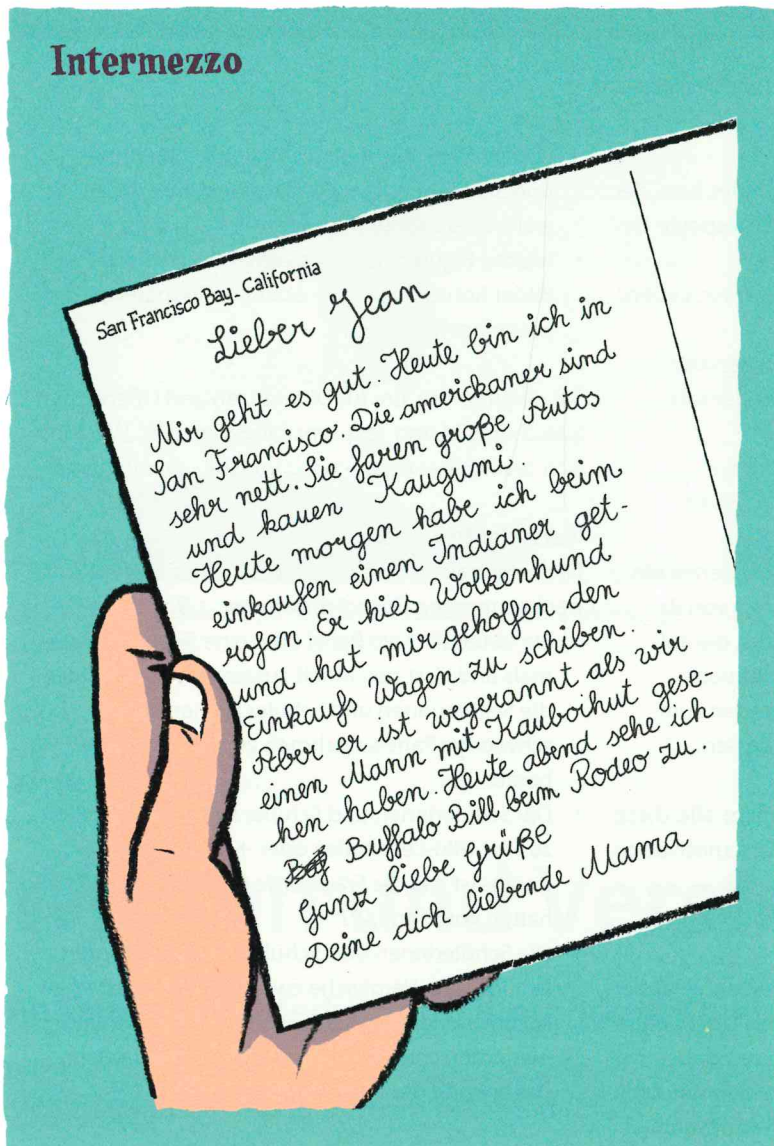 Intermezzo
San Francisco Bay - California
Lieber Jean
Mir geht es gut. Heute bin ich in
San Francisco. Die americkaner sind
sehr nett. Sie faren große Autos
und kauen Kaugumi.
Heute morgen habe ich beim
einkaufen einen Indianer get-
rofen. Er hies Wolkenhund
und hat mir geholfen den
Einkaufs Wagen zu schiben.
Aber er ist wegerannt als wir
einen Mann mit Kauboihut gese-
hen haben. Heute abend sehe ich
Buffalo Bill beim Rodeo zu
Ganz liebe Grüße
Deine dich liebende Mama